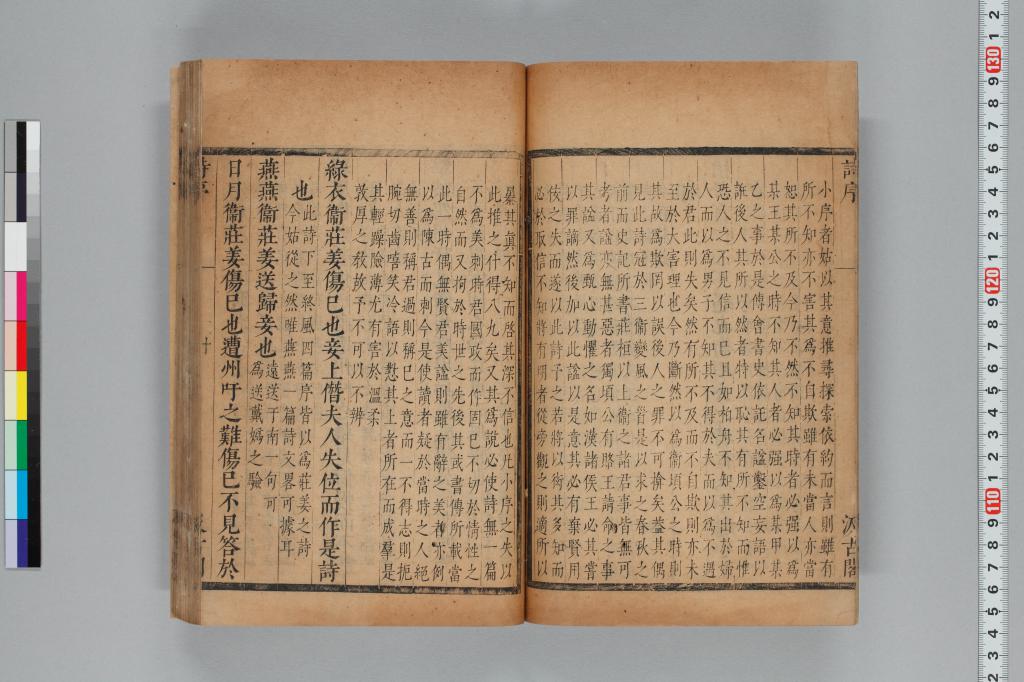 詩序
汲古閣
小序者姑以其意推尋探索依約而言則雖有
所不知亦不害其為不自欺雖有未當人亦當
恕其所不及今乃不然不知其時者必强以為
某王某公之時不知其人者必强以為某甲某
乙之事於是傅會書史依託名諡鑿空妄語以
誑後人其所以然者特以恥其有所不知而惟
恐人之不見信而已且如柏舟不知其出於婦
人而以為男子不知其不得於夫而以為不遇
於君此則失矣然有所不及而不自欺則亦未
至於大害理也今乃斷然以為衞頃公之時則
其故為欺罔以誤後人之罪不可揜矣蓋其偶
見此詩冠於三衞變風之首是以求之春秋之
前而史記所書莊桓以上衞之諸君事皆無可
考者諡亦無甚惡者獨頃公有賂王請命之事
其諡又為甄心動懼之名如漢諸侯王必其嘗
以罪謫然後加以此諡以是意其必有棄賢用
佞之失而遂以此詩予之若將以衒其多知而
必於取信不知將有明者從旁觀之則適所以
㬥其眞不知而啓其深不信也凡小序之失以
此推之什得八九矣又其為說必使詩無一篇
不為美刺時君國政而作固已不切於情性之
自然而又拘於時世之先後其或書傳所載當
此一時偶無賢君美諡則雖有辭之美者亦例
以為陳古而刺今是使讀者疑於當時之人絕
無善則稱君過則稱已之意而一不得志則扼
腕切齒嘻笑冷語以懟其上者所在而成羣是
其輕躁險薄尤有害於溫柔
敦厚之教故予不可以不辨
綠衣衞莊姜傷已也妾上僭夫人失位而作是詩
也此詩下至終風四篇序皆以為莊姜之詩
今姑從之然唯燕燕一篇詩文畧可據耳
燕燕衞莊姜送歸妾也遠送于南一句可
為送戴媯之驗
日月衞莊姜傷已也遭州吁之難傷已不見答於